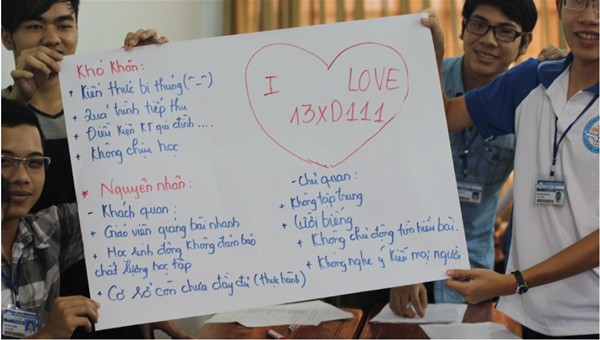 Khó Khăn:
+ Kiến thức bị thủng (^-^)
+ Quá trình tiếp thu
+ Điều kiện KT gia đình ....
+ Không chịu học
I LOVE
13XD111
* Nguyên nhân:
- Khách quan:
+ Giáo viên giảng bài nhanh
+ Học sinh đông không đảm bảo
chất lượng học tập
+ Cơ sở còn chưa đầy đủ (thực hành)
- Chủ quan:
+ Không tập trung
+ Lười biếng
+ Không chủ động tìm hiểu bài.
+ Không nghe ý kiến mọi người